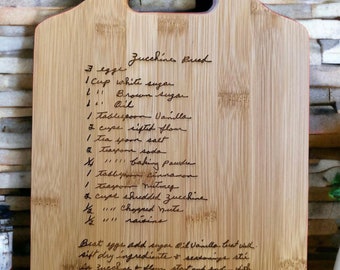 Zucchini Bread
3 eggs
1 cup white sugar
1 " Brown sugar
1 " Oil
1 tablespoon Vanilla
3 cups sifted flour
1 tea spoon salt
2 teaspoon soda
¼ """ baking powder
1 tablespoon cinnamon
1 teaspoon nutmeg
2 cups shredded Zucchini
½ """ Chopped Nuts
½ """ raisins
Beat eggs add sugar Oil Vanilla beat well
sift dry ingredients &
zucchini & flour